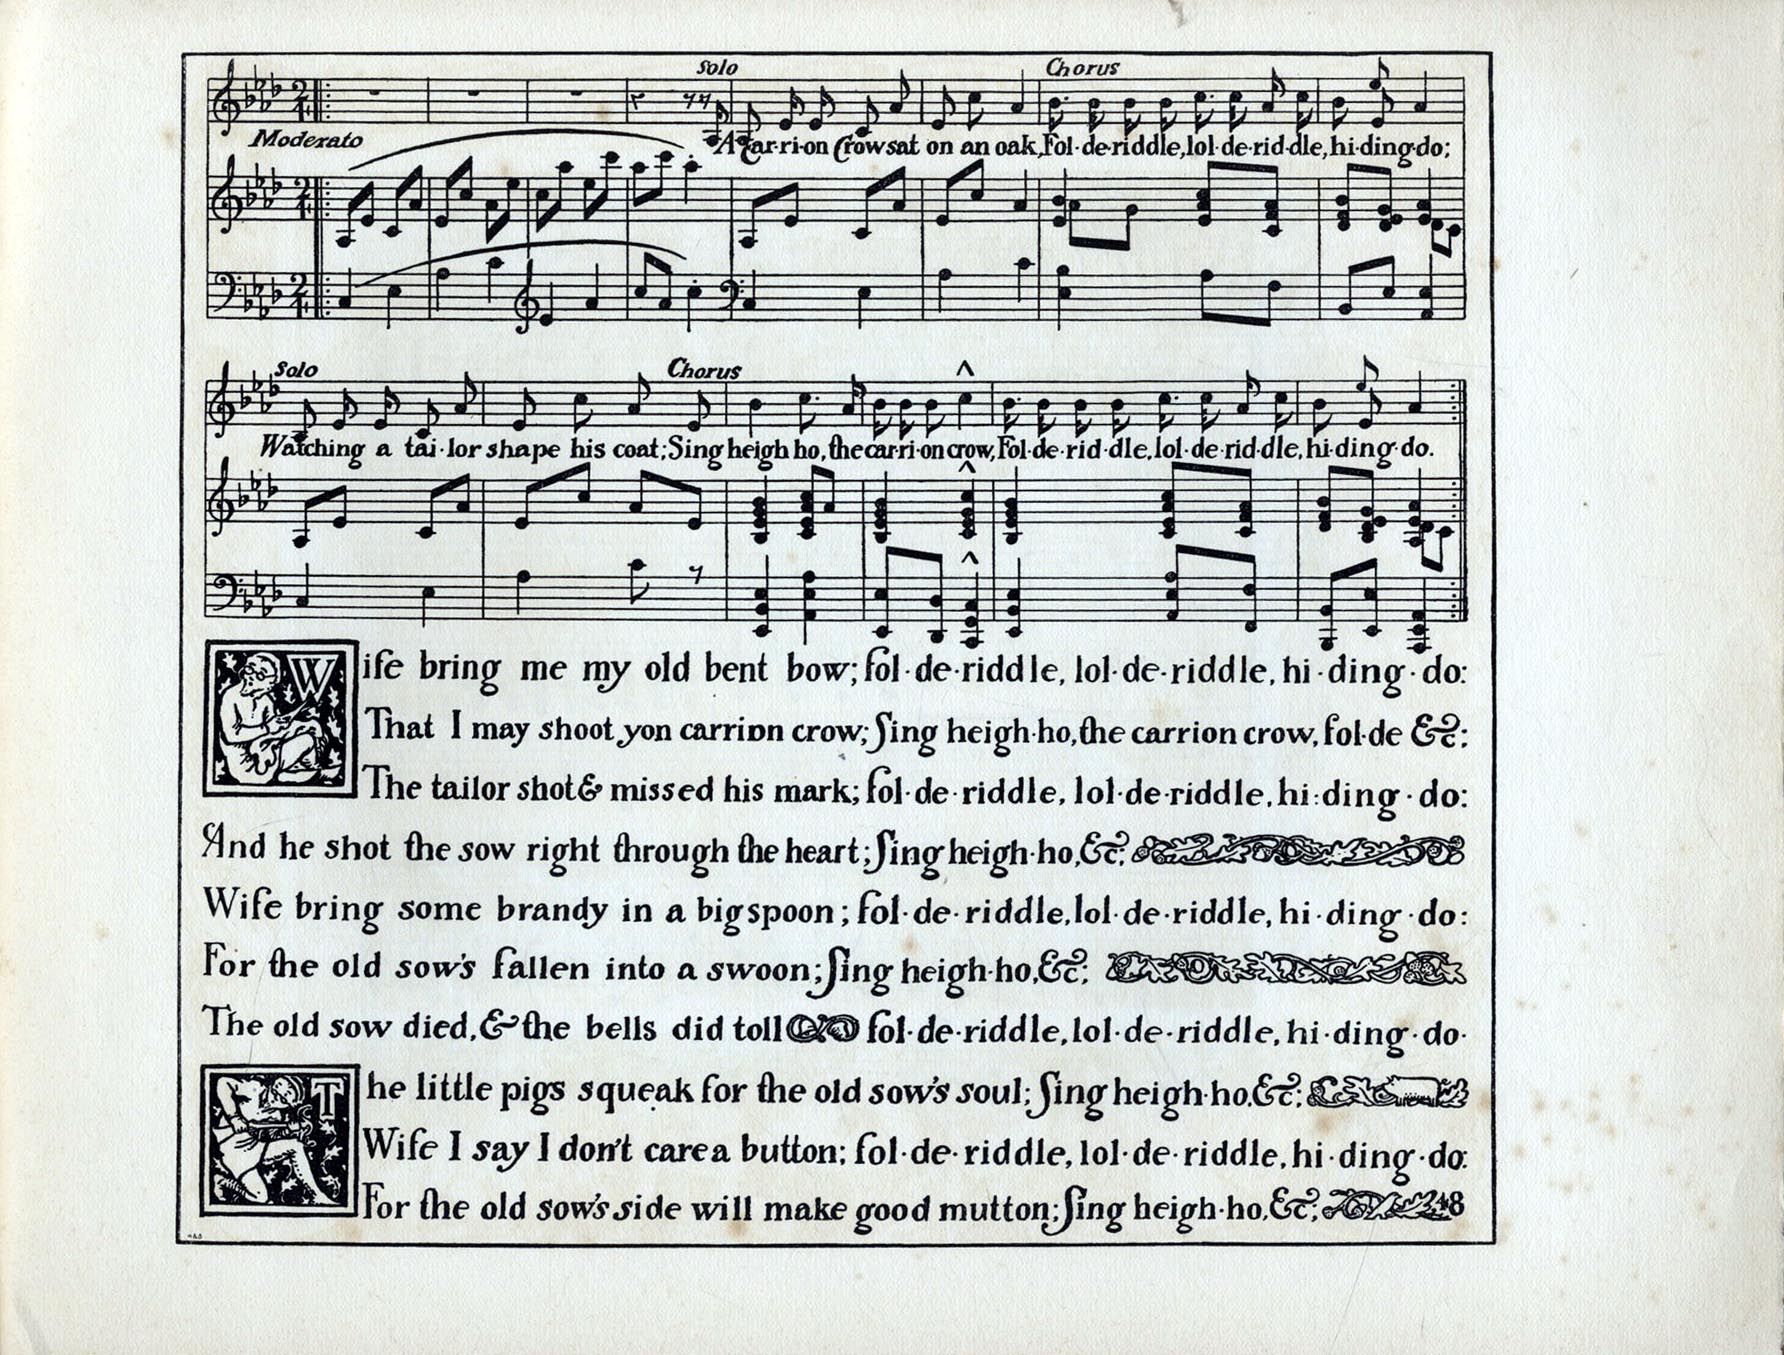 Solo Chorus
Moderato
A Car·ri·on Crow sat on an oak, Fol·de·riddle, lol·de·rid·dle, hi·ding·do;
Solo Chorus
Watching a tai·lor shape his coat; Sing heigh ho, the car·ri·on crow, Fol·de·rid·dle, lol·de·rid·dle, hi·ding·do.
Wife bring me my old bent bow; fol·de·riddle, lol·de·riddle, hi·ding·do:
That I may shoot yon carrion crow; Sing heigh·ho, the carrion crow, fol·de &c:
The tailor shot & missed his mark; fol·de·riddle, lol·de·riddle, hi:ding·do:
And he shot the sow right through the heart; Sing heigh·ho, &c:
Wife bring some brandy in a big spoon; fol·de·riddle, lol·de·riddle, hi·ding·do:
For the old sow's fallen into a swoon; Sing heigh·ho, &c:
The old sow died, & the bells did toll fol·de·riddle, lol·de·riddle, hi·ding·do·
The little pigs squeak for the old sow's soul; Sing heigh·ho, &c:
Wife I say I don't care a button; fol·de·riddle, lol·de·riddle, hi·ding·do:
For the old sow's side will make good mutton; Sing heigh·ho, &c; 48